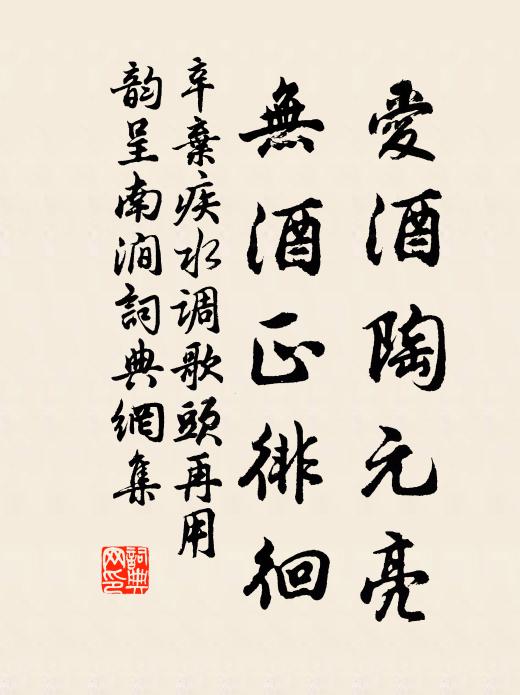 愛酒陶元亮
無酒正徘徊
辛棄疾水调歌頭再用
韵呈南澗詞典網集
詞典網印